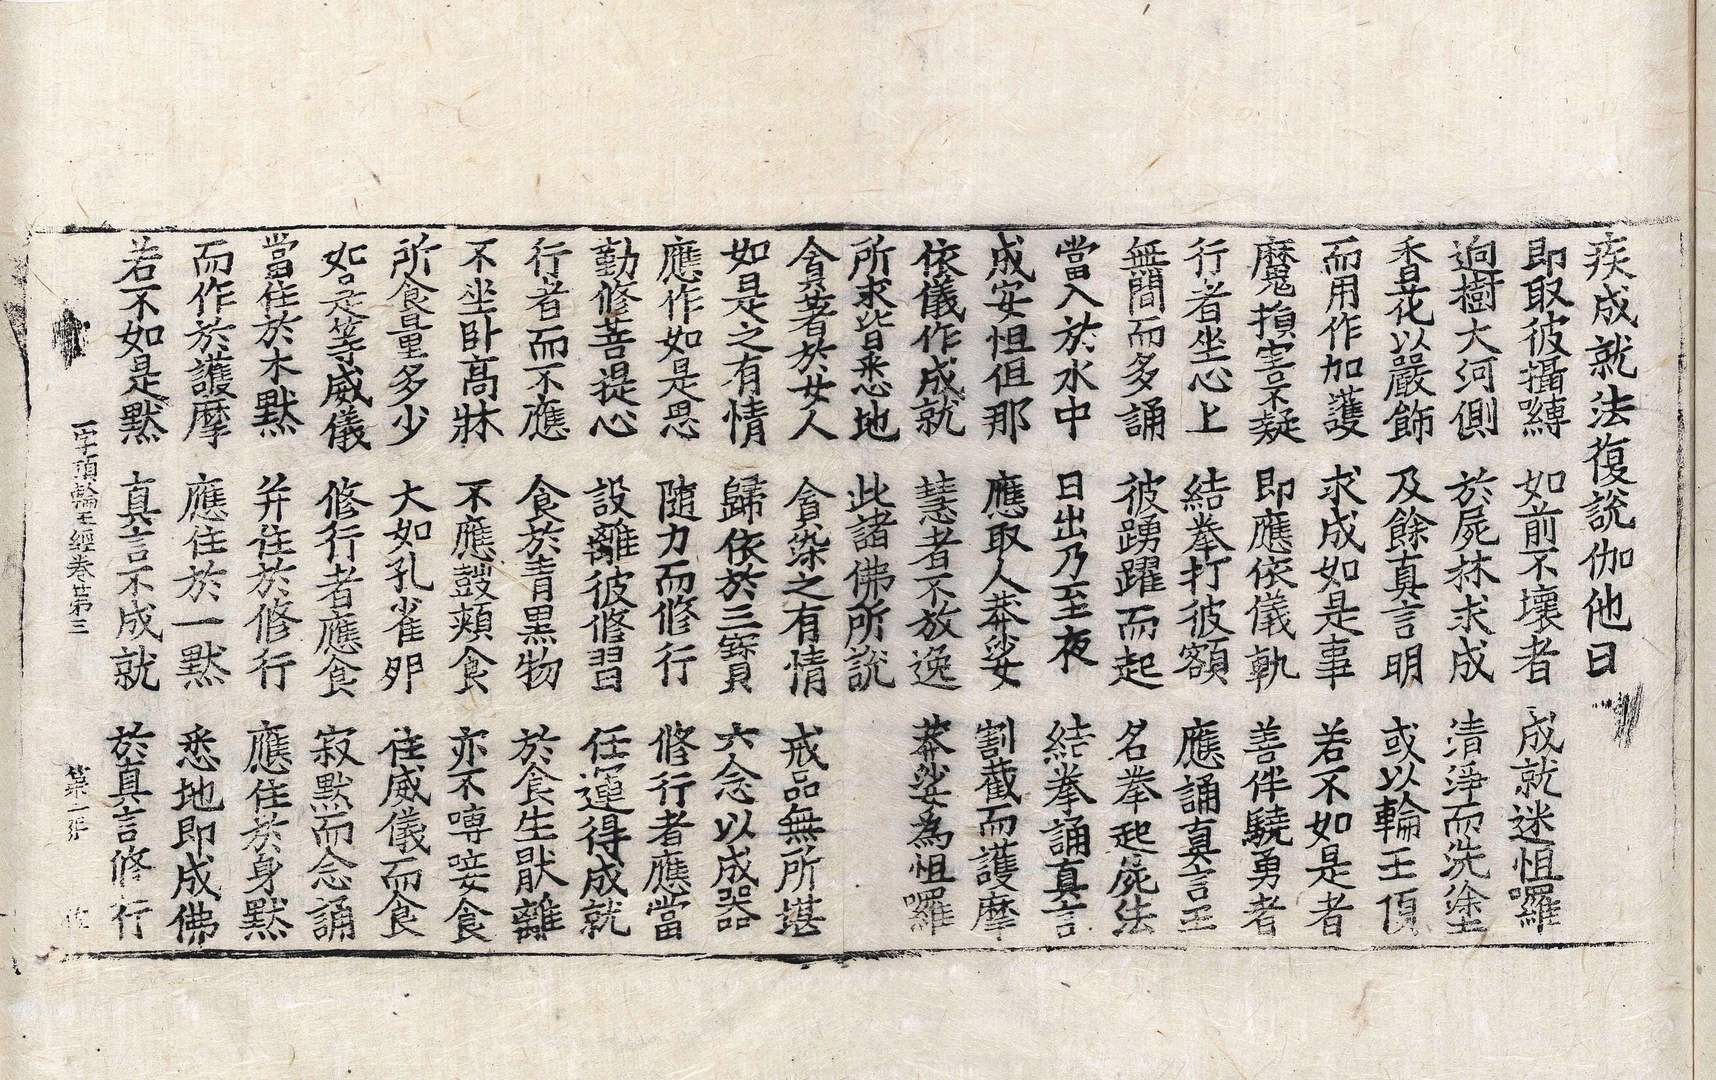 疾成就法復說伽他曰
即取彼攝縛 如前不壞者 成就迷怛囉
逈樹大河側 於屍林求成 清淨而洗塗
香花以嚴飾 及餘真言明 或以輪王頂
而用作加護 求成如是事 若不如是者
魔損害不疑 即應依儀軌 善伴驍勇者
行者坐心上 結拳打彼額 應誦真言王
無間而多誦 彼踴躍而起 名拳起屍法
當入於水中 日出乃至夜 結拳誦真言
成安怛但那 應取人莽娑 割截而護摩
依儀作成就 慧者不放逸 莽娑為怛囉
所求皆悉地 此諸佛所說
貪著於女人 貪染之有情 戒品無所堪
如是之有情 歸依於三寶 六念以成器
應作如是思 隨力而修行 修行者應當
勤修菩提心 設離彼修習 任運得成就
行者而不應 食於青黑物 於食生猒離
不坐臥高牀 不應鼓頰食 亦不嚩唼食
所食量多少 大如孔雀卵 住威儀而食
如是等威儀 修行者應食 寂默而念誦
當住於木默 并住於修行 應住於身默
而作於護摩 應住於一默 悉地即成佛
若不如是默 真言不成就 於真言修行
一字頂輪王經卷第三 第二張